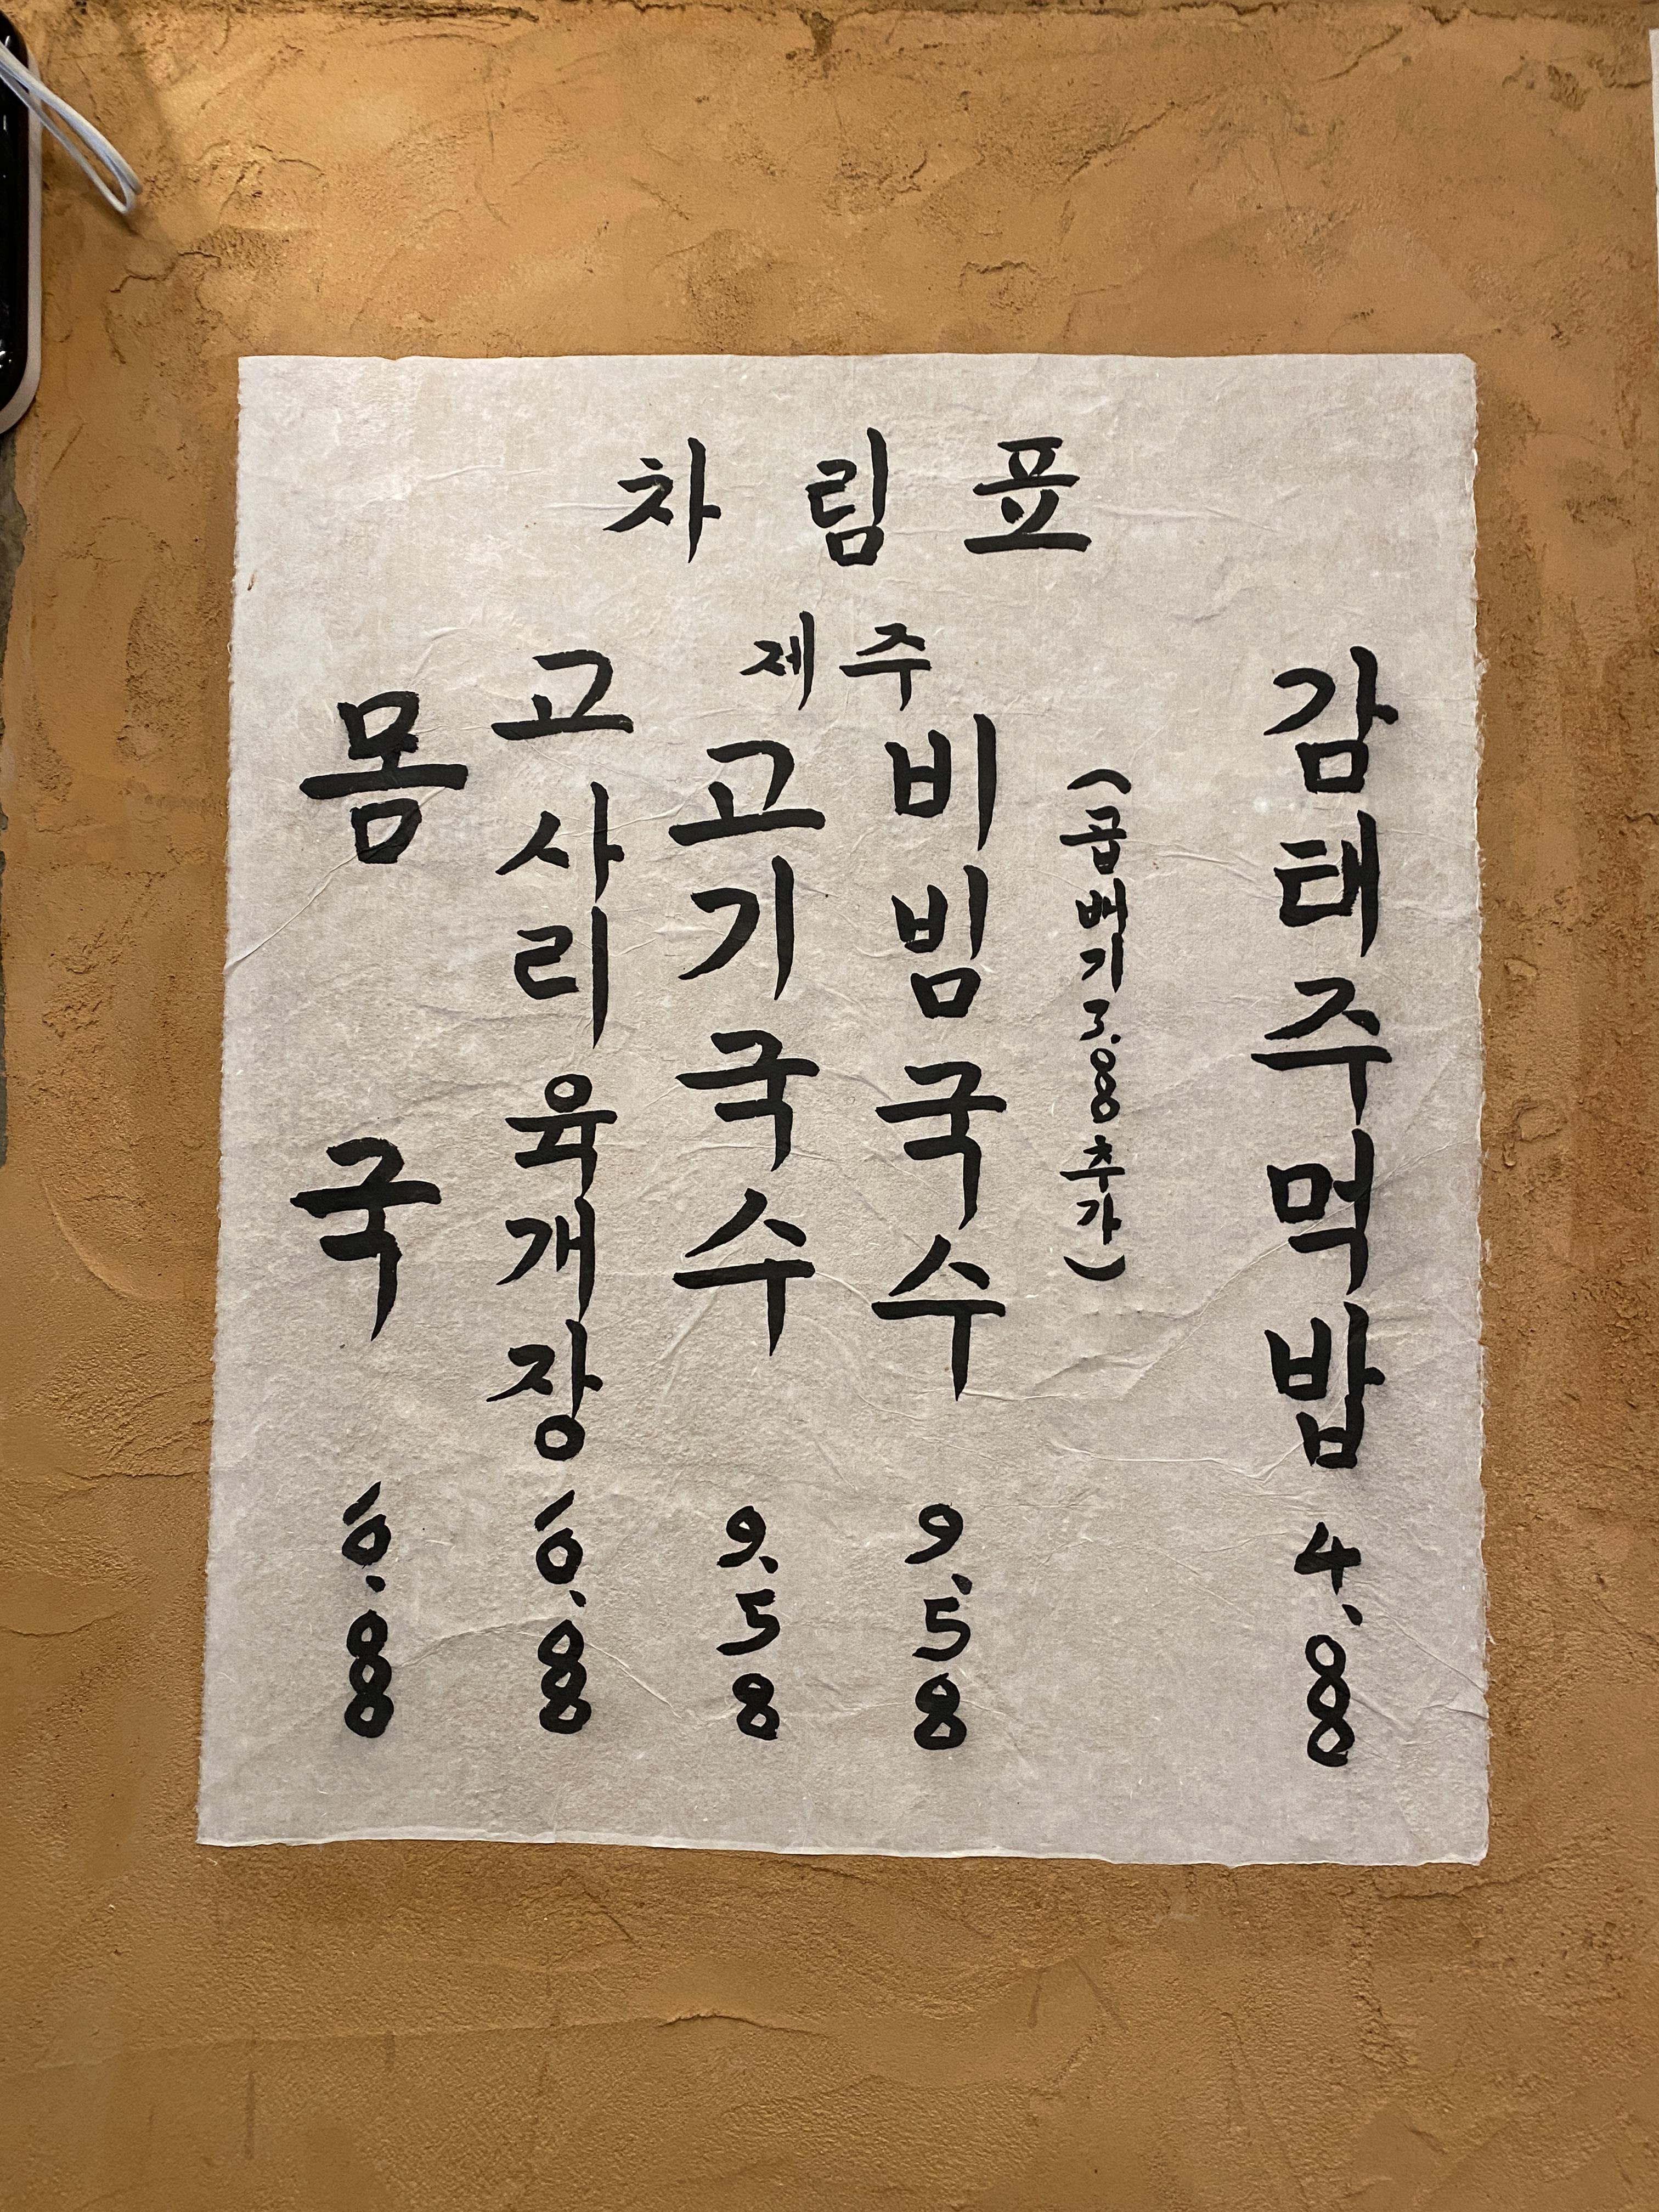 차림표
제주
몸국 6.88
고사리육개장 6.88
고기국수 9.58
비빔국수 9.58
(곱배기 3.88 추가)
감태주먹밥 4.88